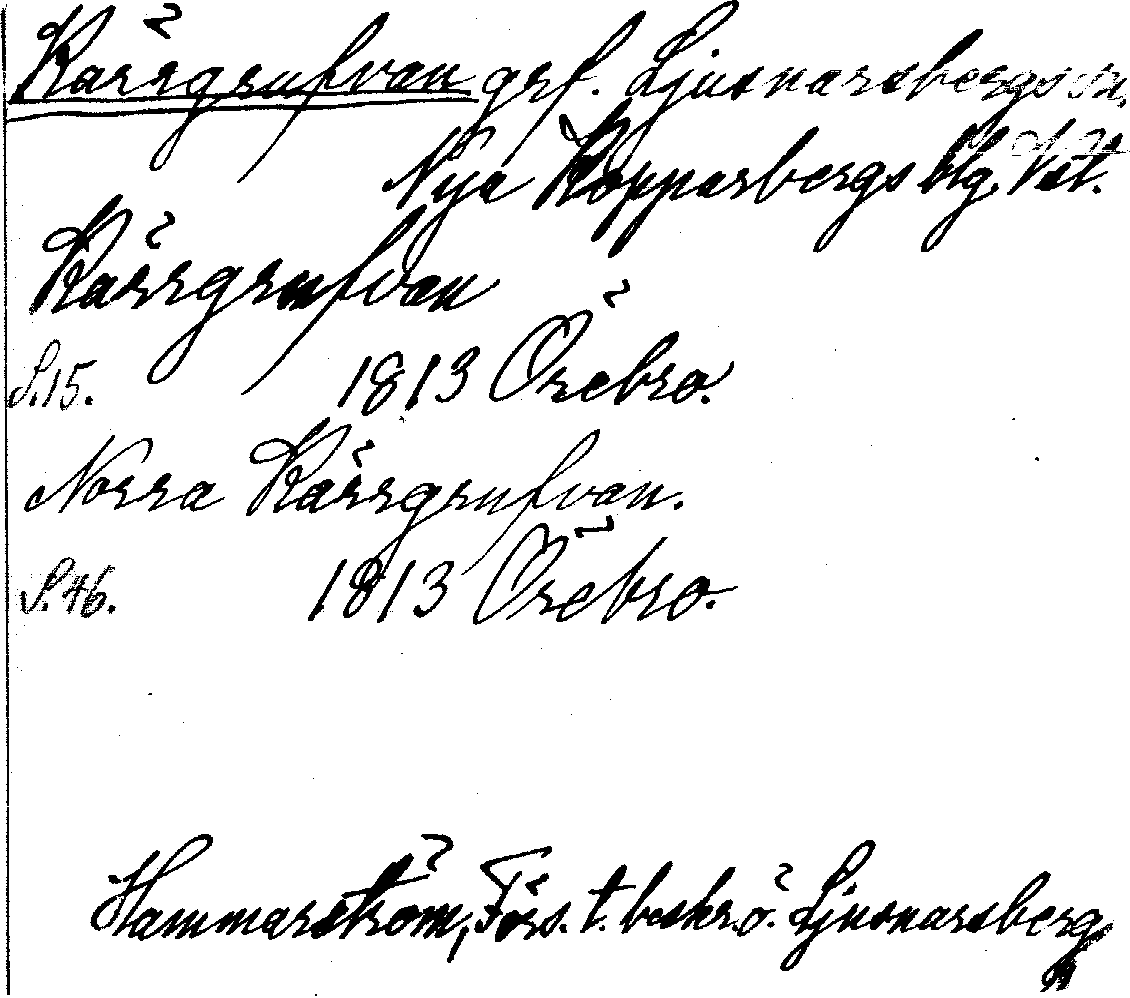 Kärrgrufvan grf. Ljusnarsbergs sn,
Nya Kopparbergs blg. Vst.
Kärrgrufvan
S.15. 1813 Örebro.
Norra Kärrgrufvan.
S.46. 1813 Örebro.
Hammarström, Förs. t. beskr. ö. Ljusnarsberg